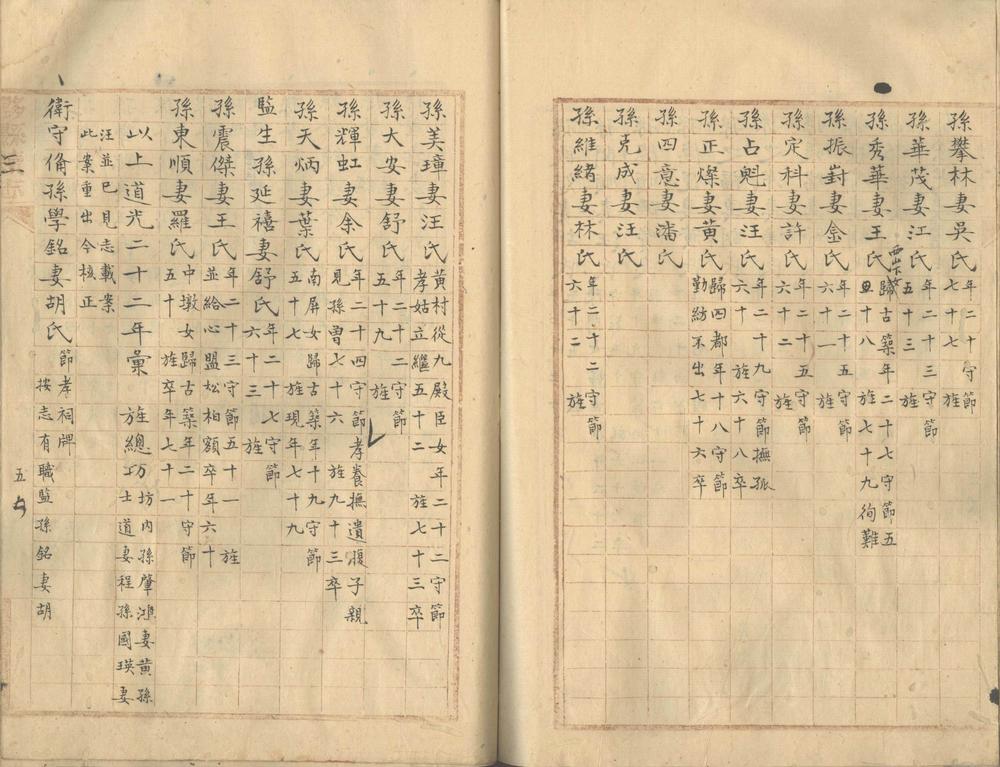 孫攀林妻吳氏年二十守節七十七旌
孫華茂妻江氏年二十三守節五十三旌
孫秀華妻王氏西山下女歸古築年二十七守節五旦十八旌七十九徇難
孫振對妻金氏年二十五守節六十一旌
孫定科妻許氏年二十五守節六十二旌
孫占魁妻汪氏年二十九守節撫孤六十旌六十八卒
孫正燦妻黃氏歸四都年十八守節勤紡不出七十六卒
孫四意妻潘氏
孫克成妻汪氏
孫維緒妻林氏年二十二守節六十二旌
孫美璋妻汪氏黃村從九殿臣女年二十二守節孝姑立繼五十二旌七十三卒
孫大安妻舒氏年二十二守節五十九旌
孫輝虹妻余氏年二十四守節孝養撫遺腹子親見孫曾七十六旌九十三卒
孫天炳妻葉氏南屏女歸古築年十九守節五十七旌現年七十九
監生孫延禧妻舒氏年二十七守節六十三旌
孫震傑妻王氏年二十三守節五十一旌並給心盟松柏額卒年六十
孫東順妻羅氏中墩女歸古築年二十守節五十旌卒年七十一
以上道光二十二年彙旌總坊坊內孫肇鴻妻黃孫士道妻程孫國瑛妻
汪並已見志載案
此案重出今核正
衛守俻孫學銘妻胡氏節孝祠牌按志有職監孫銘妻胡
三
五